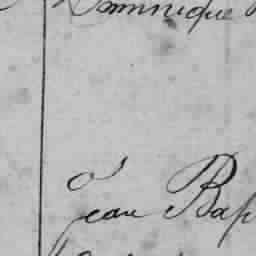 Dominique
Jean Bap